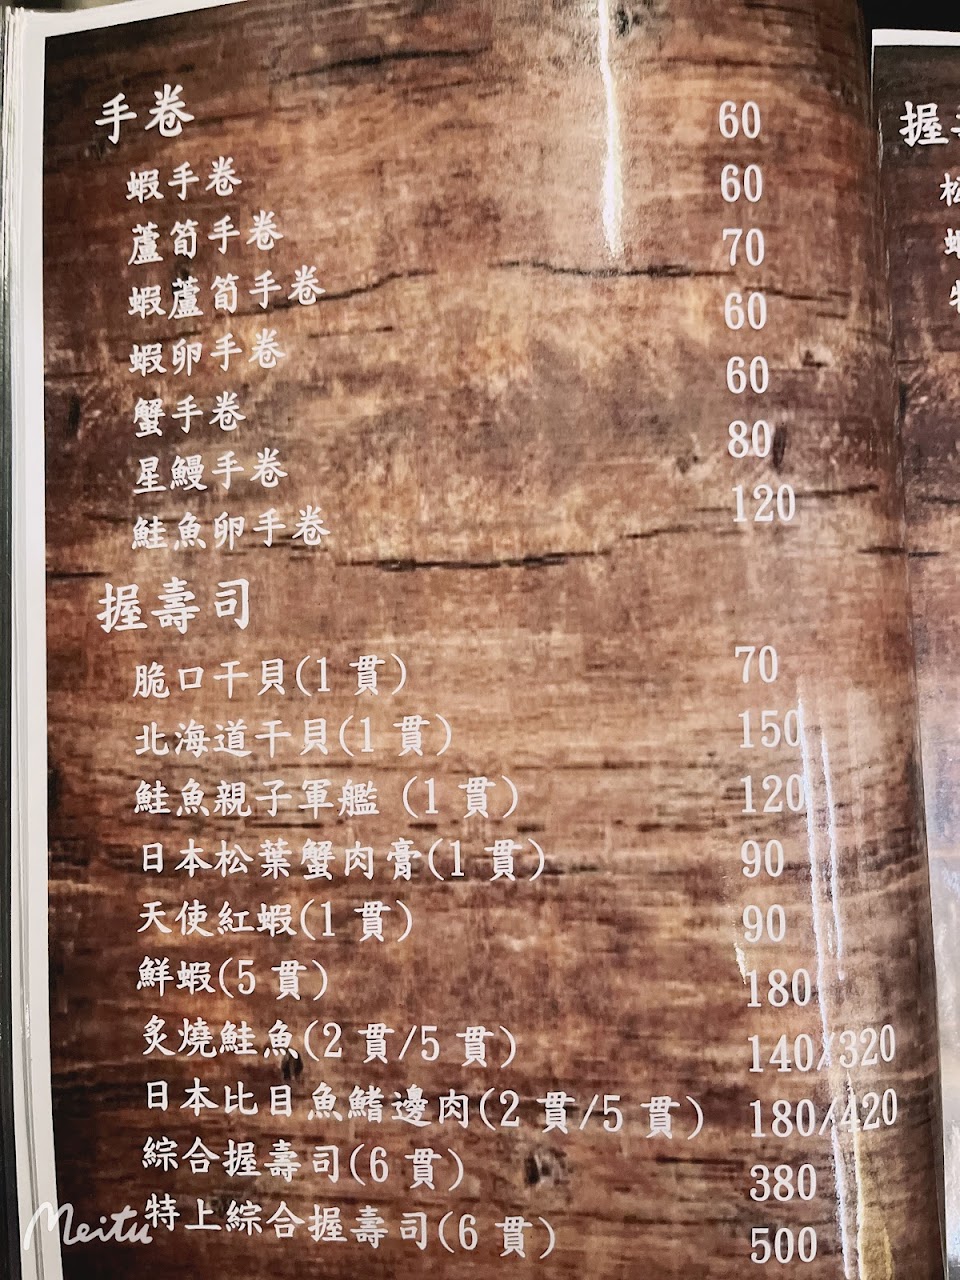 手卷
蝦手卷 60
蘆筍手卷 60
蝦蘆筍手卷 70
蝦卵手卷 60
蟹手卷 60
星鰻手卷 80
鮭魚卵手卷 120
握壽司
脆口干貝(1 貫) 70
北海道干貝(1 貫) 150
鮭魚親子軍艦 (1 貫) 120
日本松葉蟹肉膏(1 貫) 90
天使紅蝦(1 貫) 90
鮮蝦(5 貫) 180
炙燒鮭魚(2 貫/5 貫) 140/320
日本比目魚鰭邊肉(2 貫/5 貫) 180/420
綜合握壽司(6 貫) 380
特上綜合握壽司(6 貫) 500
握
Meitu